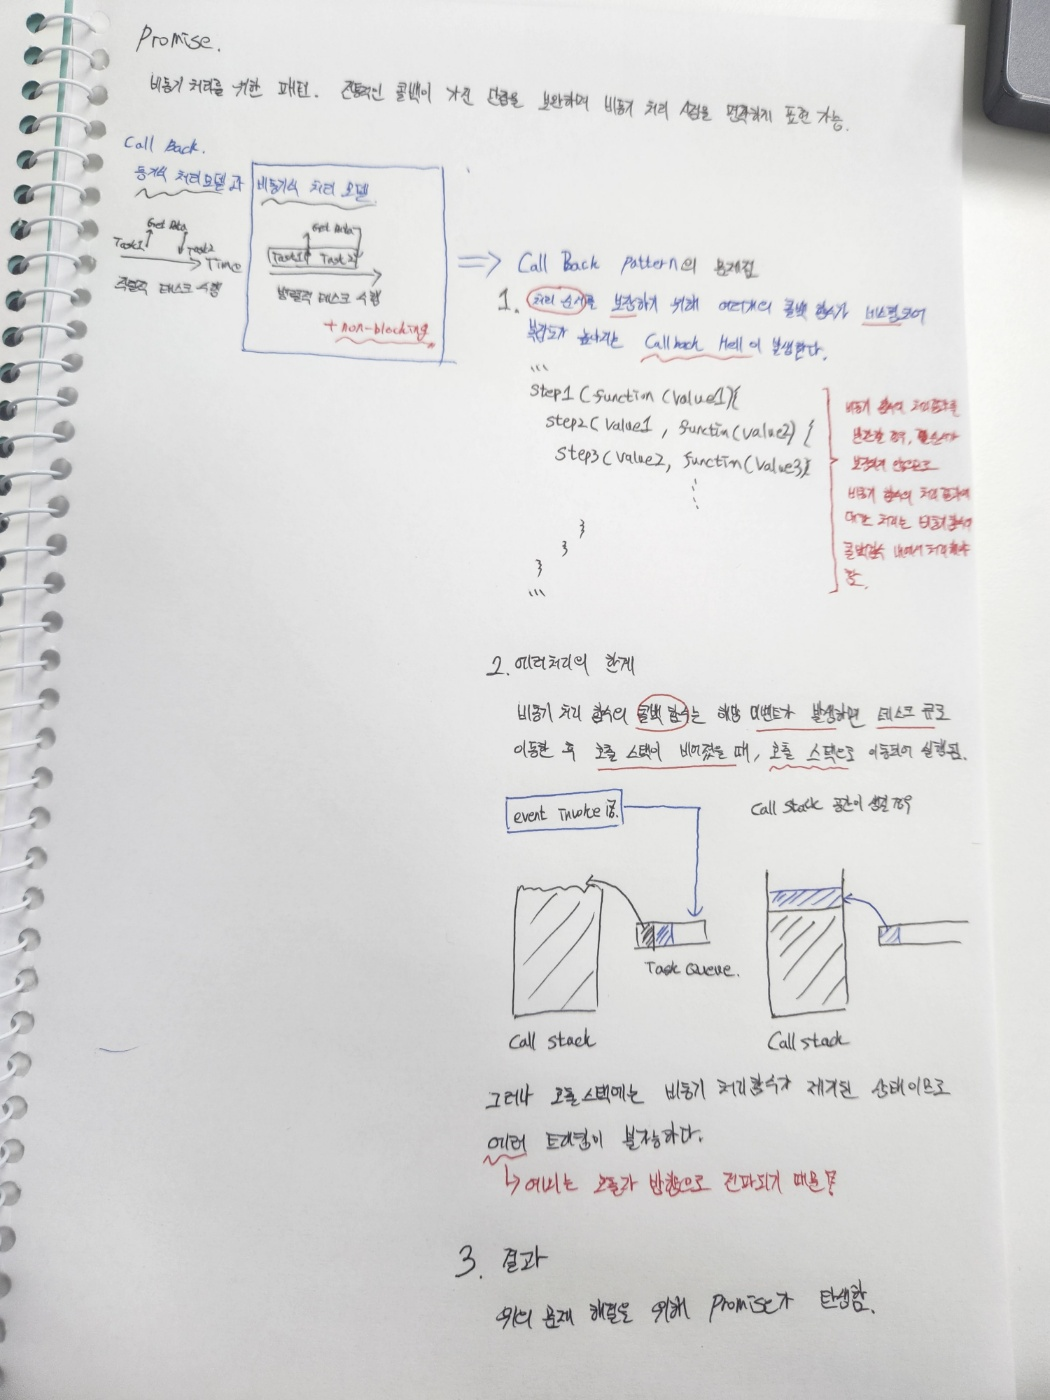 Promise.
비동기 처리를 위한 패턴. 전통적인 콜백이 가진 단점을 보완하며 비동기 처리 시점을 명확하게 표현 가능.
Call Back.
동기식 처리모델과 비동기식 처리 모델.
Get Data
Task1 Task2
Time
직렬적 태스크 수행
Get Data
Task1 Task2
병렬적 태스크 수행
+ non-blocking.
⇒ Call Back Pattern의 문제점
1. 처리 순서를 보장하기 위해 여러개의 콜백 함수가 네스팅되어
복잡도가 높아지는 Callback Hell이 발생한다.
```
Step1 (function (Value1){
Step2( Value1 , functin(value2) {
Step3(Value2, functin(Value3){
}
}
}
```
비동기 함수의 처리결과를
반환할 경우, 순서가
보장되지 않으므로
비동기 함수의 처리 결과에
대한 처리는 비동기 함수의
콜백함수 내에서 처리해야
함.
2. 에러처리의 한계
비동기 처리 함수의 콜백 함수는 해당 이벤트가 발생하면 테스크 큐로
이동한 후 호출 스택이 비어졌을 때, 호출 스택으로 이동되어 실행됨.
event Invoke
Call Stack 공간이 생길 경우
Task Queue.
Call stack
Call stack
그러나 호출스택에는 비동기 처리함수가 제거된 상태이므로
에러 트래킹이 불가능하다.
↳ 에러는 호출자 방향으로 전파되기 때문
3. 결과
위의 문제 해결을 위해 Promise가 탄생함.